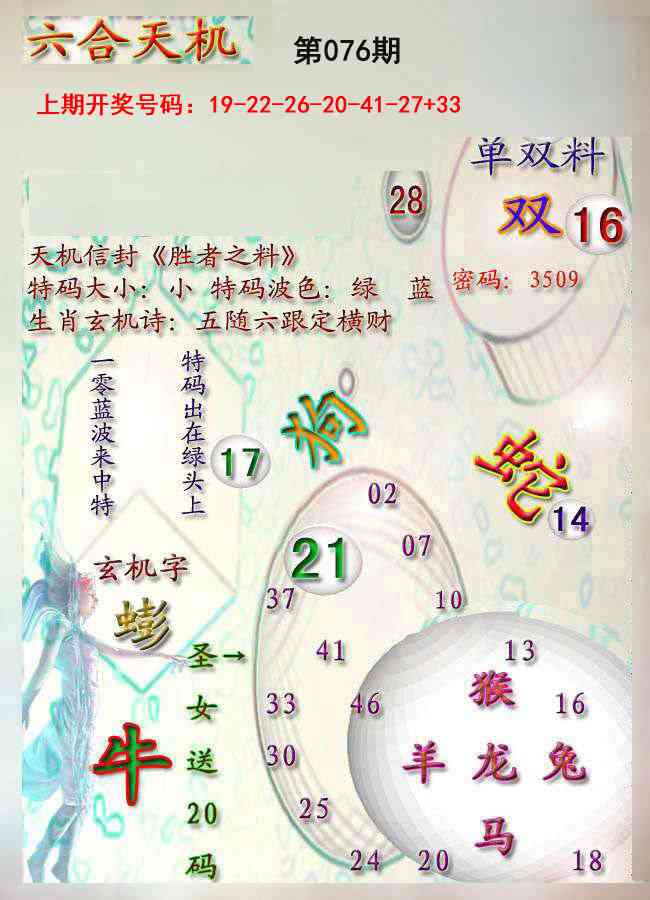 六合天机
第076期
上期开奖号码：19-22-26-20-41-27+33
单双料
28
双
16
天机信封《胜者之料》
特码大小：小 特码波色：绿 蓝
密码：3509
生肖玄机诗：五随六跟定横财
特码出在绿头上
一零蓝波来中特
17
狗
蛇
14
02
21
07
玄机字
37
10
蟛
圣→
41
13
猴
女
33
46
16
牛
送
30
羊
龙
兔
20
25
马
码
24
20
18